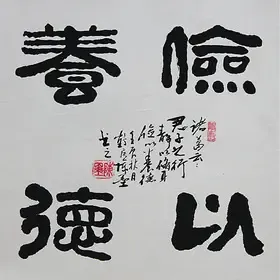 儉以
養德
諸葛亮云
君子之行
靜以修身
儉以養德